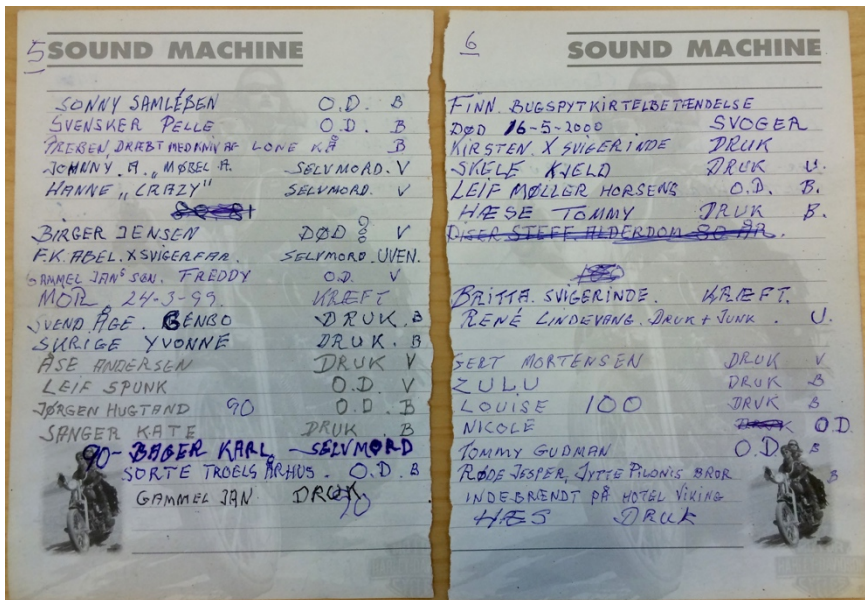 5 SOUND MACHINE
SONNY SAMLEBEN O.D. B
SVENSKER PELLE O.D. B
PREBEN, DRÆBT MED KNIV AF LONE KÅ B
JOHNNY A. „MØBEL A. SELVMORD. V
HANNE „CRAZY" SELVMORD. V
BIRGER JENSEN DØD V
F.K. ABEL. XSVIGERFAR. SELVMORD. UVEN.
GAMMEL JAN'S SØN. FREDDY O.D. V
MOR. 24-3-99. KRÆFT
SVEND ÅGE. GENBO DRUK. B
SKRIGE YVONNE DRUK. B
ÅSE ANDERSEN DRUK V
LEIF SPUNK O.D. V
JØRGEN HUGTAND 90 O.D. B
SANGER KATE DRUK. B
90- BAGER KARL. - SELVMORD
SORTE TROELS ÅRHUS. O.D. B
GAMMEL JAN DRUK
90
6 SOUND MACHINE
FINN. BUGSPYTKIRTELBETÆNDELSE
DØD 16-5-2000 SVOGER
KIRSTEN. X SVIGERINDE DRUK
SKELE KJELD DRUK U.
LEIF MØLLER HORSENS O.D. B.
HÆSE TOMMY DRUK B.
DISER STEFF ALDERDOM 80 ÅR.
BRITTA. SVIGERINDE. KRÆFT.
RENÉ LINDEVANG. DRUK + JUNK. U.
GERT MORTENSEN DRUK V
ZULU DRUK B
LOUISE 100 DRUK B
NICOLE DRUK O.D.
TOMMY GUDMAN O.D. B
RØDE JESPER, JYTTE PILONIS BROR B
INDEBRÆNDT PÅ HOTEL VIKING
HÆS DRUK